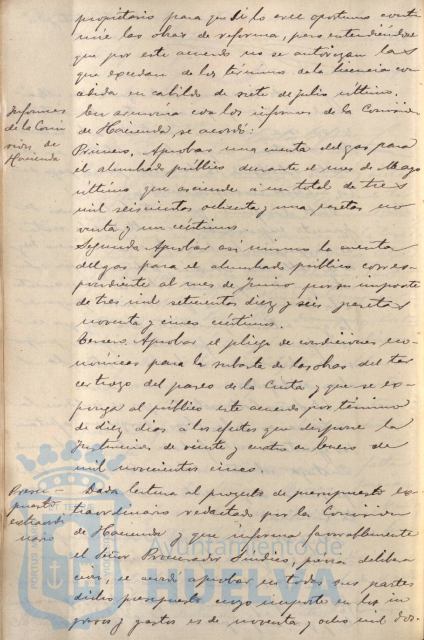 propietario para que si lo cree oportuno conti
núe las obras de reforma, pero entendiéndose
que por este acuerdo no se autorizan las
que excedan de los términos de la licencia con
cedida en cabildo de siete de julio último.
Informes
de la Comi
sión de
Hacienda
En armonía con los informes de la Comisión
de Hacienda, se acordó:
Primero. Aprobar una cuenta del gas para
el alumbrado público durante el mes de Mayo
último que asciende a un total de tres
mil seiscientos ochenta y una pesetas no
venta y un céntimos.
Segundo. Aprobar asi mismo la cuenta
del gas para el alumbrado público corres-
pondiente al mes de Junio por su importe
de tres mil setecientos diez y seis pesetas
noventa y cinco céntimos.
Tercero. Aprobar el pliego de condiciones eco-
nómicas para la subasta de las obras del ter
cer trozo del paseo de la Cinta y que se ex-
ponga al público este acuerdo por término
de diez días á los efectos que dispone la
Instrucción de veinte y cuatro de Enero de
mil novecientos cinco.
Presu-
puesto
extraordi
nario
Dada lectura al proyecto de presupuesto ex-
traordinario redactado por la Comisión
de Hacienda y que informa favorablemente
el Señor Procurador Síndico, previa delibera
ción, se acordó aprobar en todas sus partes
dicho presupuesto cuyo importe en los in
gresos y gastos es de noventa y ocho mil dos-
Ayuntamiento de
HUELVA